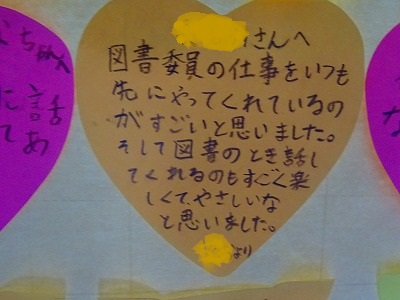 さんへ
図書委員の仕事をいつも
先にやってくれているの
がすごいと思いました。
そして図書のとき話し
てくれるのもすごく楽
しくて、やさしいな
と思いました。
より
ちゃんへ
話
てあ
な